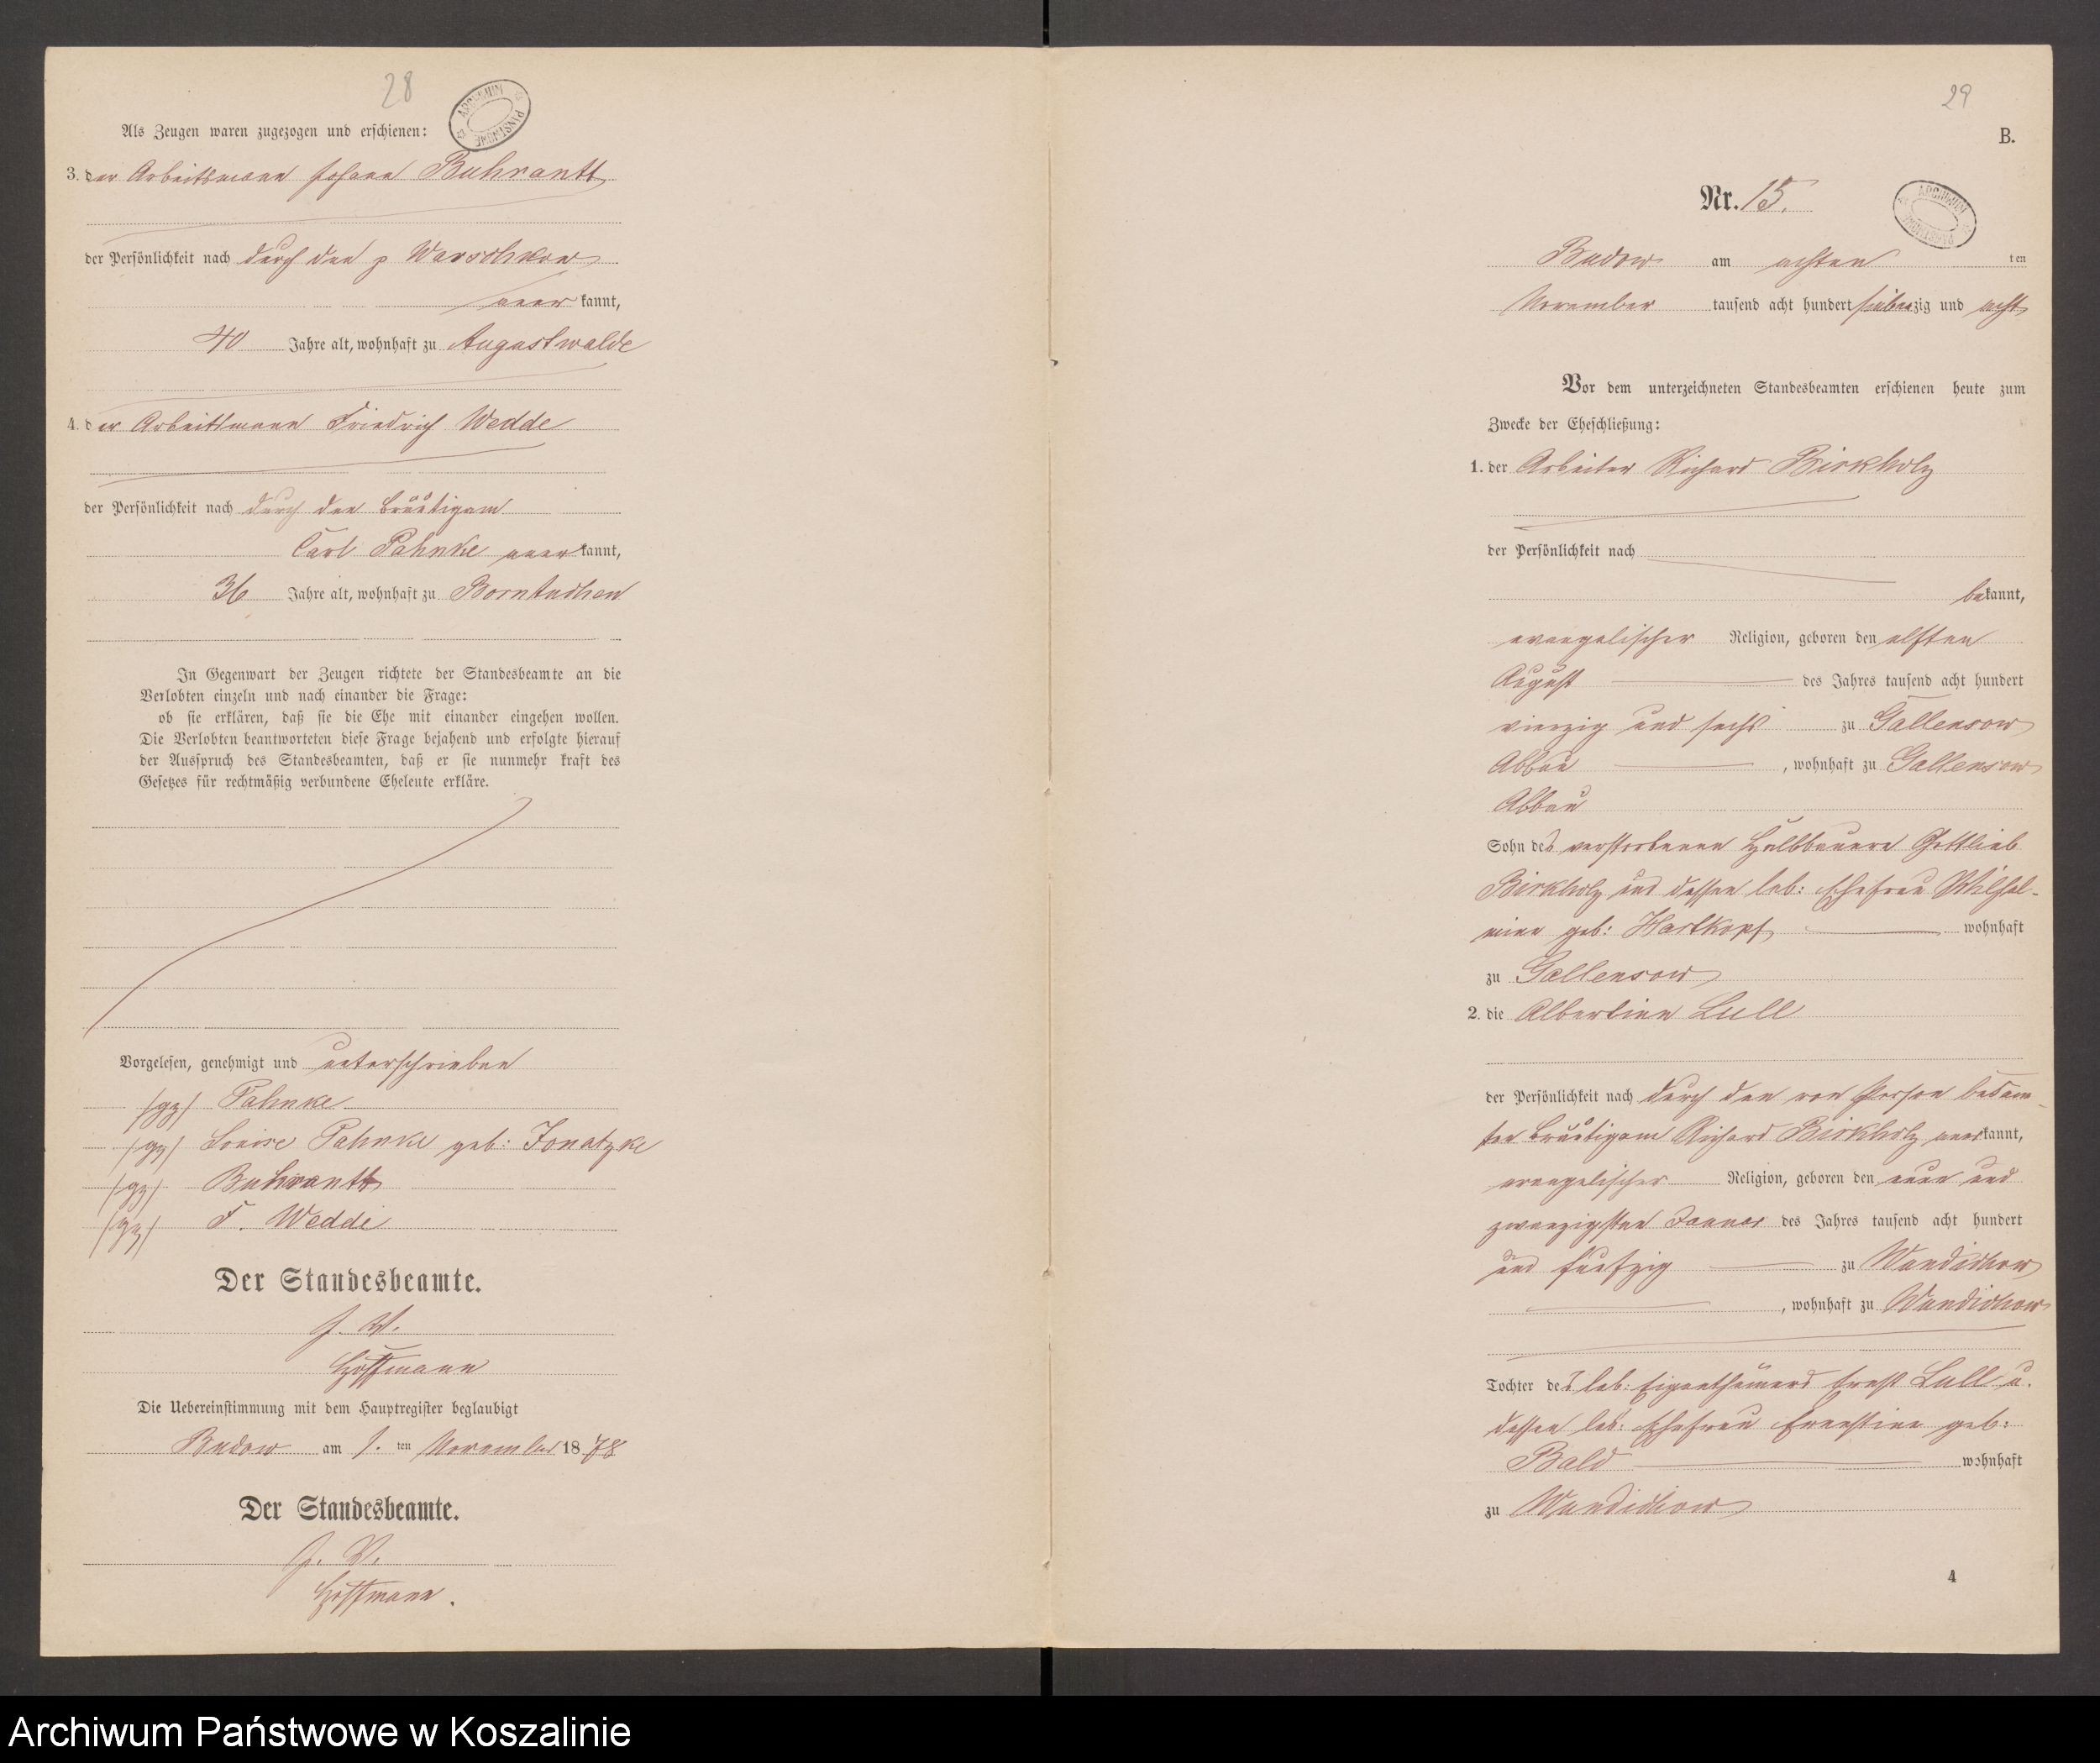 28
ARCHIWUM PAŃSTWOWE
Als Zeugen waren zugezogen und erschienen:
3. der Arbeitsmann Johann Buhrantt
der Persönlichkeit nach durch den p Warschkow
aner kannt,
40 Jahre alt, wohnhaft zu Augustwalde
4. der Arbeitsmann Friedrich Wedde
der Persönlichkeit nach durch den Bräutigam
Carl Pahnke anerkannt,
36 Jahre alt, wohnhaft zu Borntuchen
In Gegenwart der Zeugen richtete der Standesbeamte an die
Verlobten einzeln und nach einander die Frage:
ob sie erklären, daß sie die Ehe mit einander eingehen wollen.
Die Verlobten beantworteten diese Frage bejahend und erfolgte hierauf
der Ausspruch des Standesbeamten, daß er sie nunmehr kraft des
Gesetzes für rechtmäßig verbundene Eheleute erkläre.
Vorgelesen, genehmigt und unterschrieben
/gz/ Pahnke
/gz/ Louise Pahnke geb: Jonatzke
/gz/ Buhrantt
/gz/ F. Wedde
Der Standesbeamte.
J. V.
Hoffmann
Die Uebereinstimmung mit dem Hauptregister beglaubigt
Budow am 1. ten November 1878
Der Standesbeamte.
J. V.
Hoffmann.
29
B.
Nr. 15.
ARCHIWUM PAŃSTWOWE
Budow am achten ten
November tausend acht hundert siebenzig und acht
Vor dem unterzeichneten Standesbeamten erschienen heute zum
Zwecke der Eheschließung:
1. der Arbeiter Richard Birkholz
der Persönlichkeit nach
bekannt,
evangelischer Religion, geboren den elften
August des Jahres tausend acht hundert
vierzig und sechs zu Gallensow
Abbau , wohnhaft zu Gallensow
Abbau
Sohn des verstorbenen Halbbauern Gottlieb
Birkholz und dessen leb: Ehefrau Wilhel-
mine geb: Hartkopf wohnhaft
zu Gallensow
2. die Albertine Lull
der Persönlichkeit nach durch den von Person bekann-
ten Bräutigam Richard Birkholz anerkannt,
evangelischer Religion, geboren den neun und
zwanzigsten Januar des Jahres tausend acht hundert
und fünfzig zu Wundichow
, wohnhaft zu Wundichow
Tochter des leb: Eigenthümers Ernst Lull u.
dessen leb: Ehefrau Ernestine geb:
Bald wohnhaft
zu Wundichow
4
Archiwum Państwowe w Koszalinie